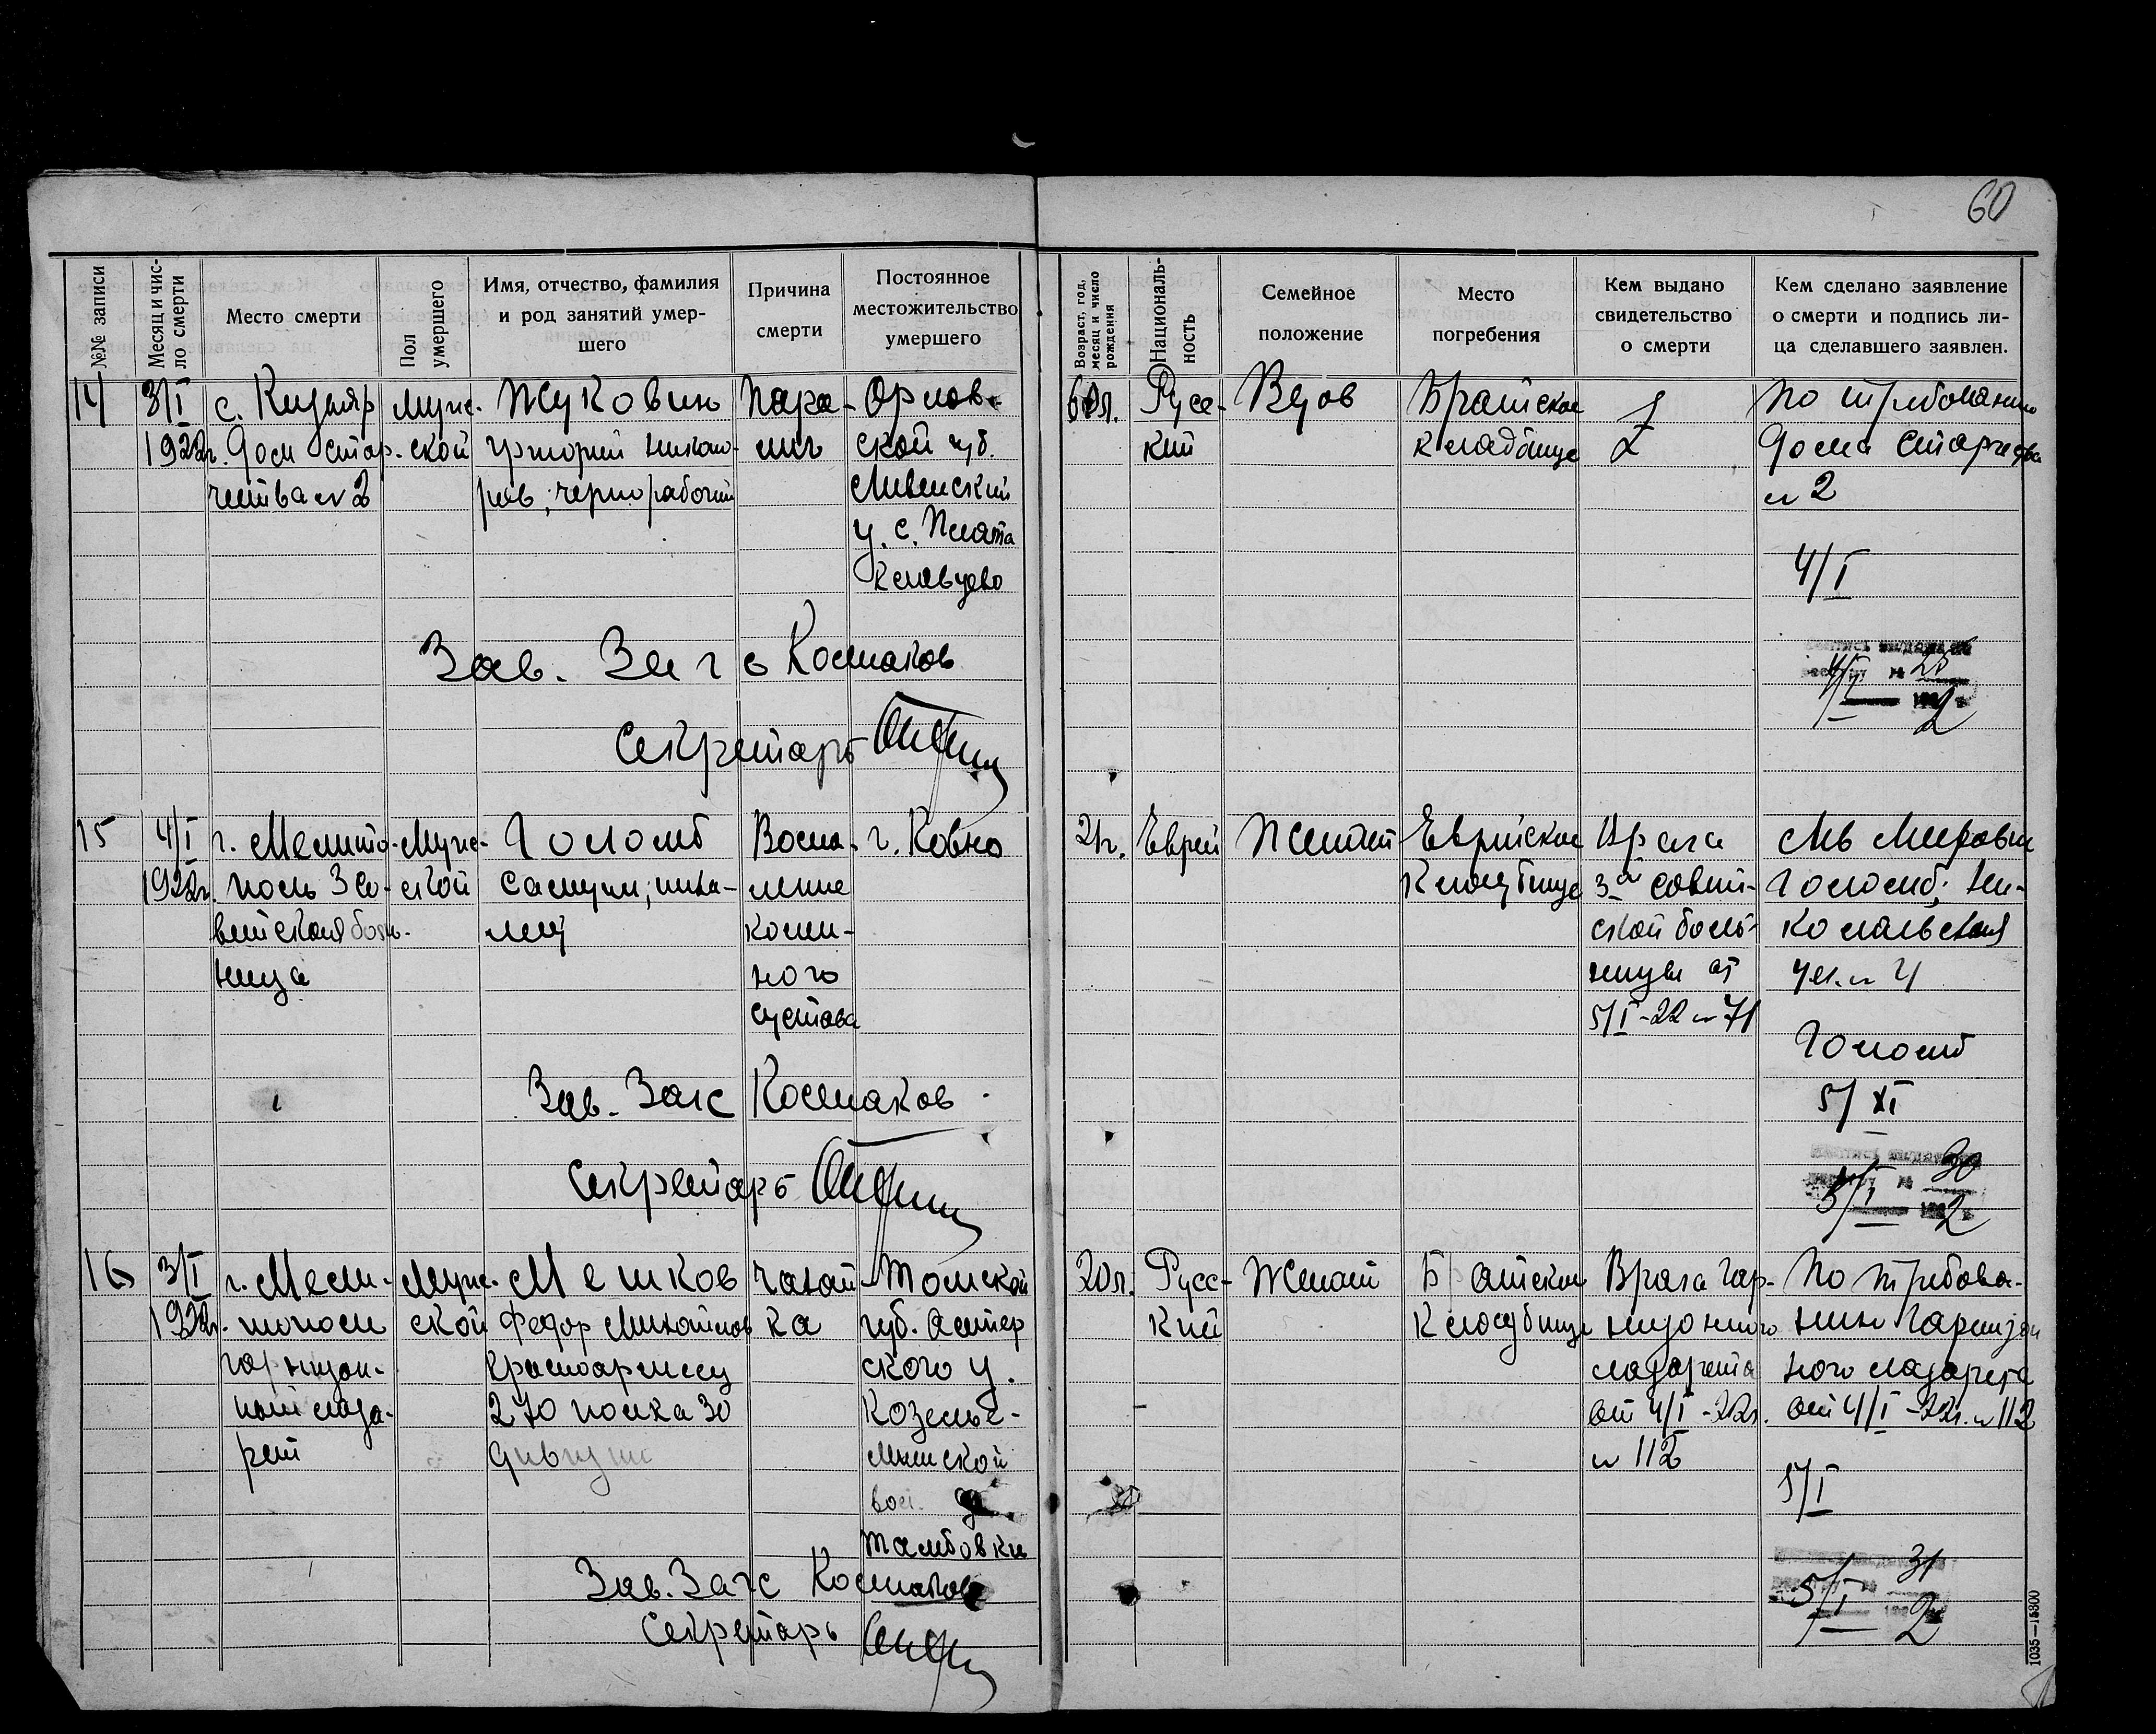 60
№№ записи
Месяц и чис-
ло смерти
Место смерти
Пол
умершего
Имя, отчество, фамилия
и род занятий умер-
шего
Причина
смерти
Постоянное
местожительство
умершего
Возраст, год,
месяц и число
рождения
Националь-
ность
Семейное
положение
Место
погребения
Кем выдано
свидетельство
о смерти
Кем сделано заявление
о смерти и подпись ли-
ца сделавшего заявлен.
14
3/I
1922г.
с. Кизыяр
Дом стар-
чества № 2
Муж-
ской
Жуковин
Григорий
чернорабочий
Пара-
лич
Орлов-
ской губ.
Ливенский
у. с.
60л.
Русс-
кий
Вдов
Братское
кладбище
По требованию
Дома старчества
№ 2
4/I
Зав. Загс Космаков
Секретарь
4/I 25
2
15
4/I
1922г.
г. Мелито-
поль 3 Со-
ветская боль-
ница
Муж-
ской
Голомб
Самуил;
Воспа-
ление
колен-
ного
сустава
г. Ковно
21г.
Еврей
Женат
Еврейское
Кладбище
Врача
3й совет-
ской боль-
ницы от
5/I-22 № 71
Голомб; Ни-
кольская
ул. № 4
Голомб
5/XI
Зав. Загс Космаков
Секретарь
5/I 30
2
16
3/I
1922г.
г. Мели-
тополь
гарнизон-
ный лаза-
рет
Муж-
ской
Мешков
Федор Михайлов
Красноармеец
270 полка 30
дивизии
Чахот-
ка
Томской
губ.
ского у.
вол.
Тамбовки
20л.
Русс-
кий
Женат
Братское
Кладбище
Врача Гар-
низонного
лазарета
от 4/I-22г.
№ 112
По требова-
нию Гарнизон
ного лазарета
от 4/I-22г. № 112
5/I
Зав. Загс Космаков
Секретарь
5/I 31
2
1035—15800